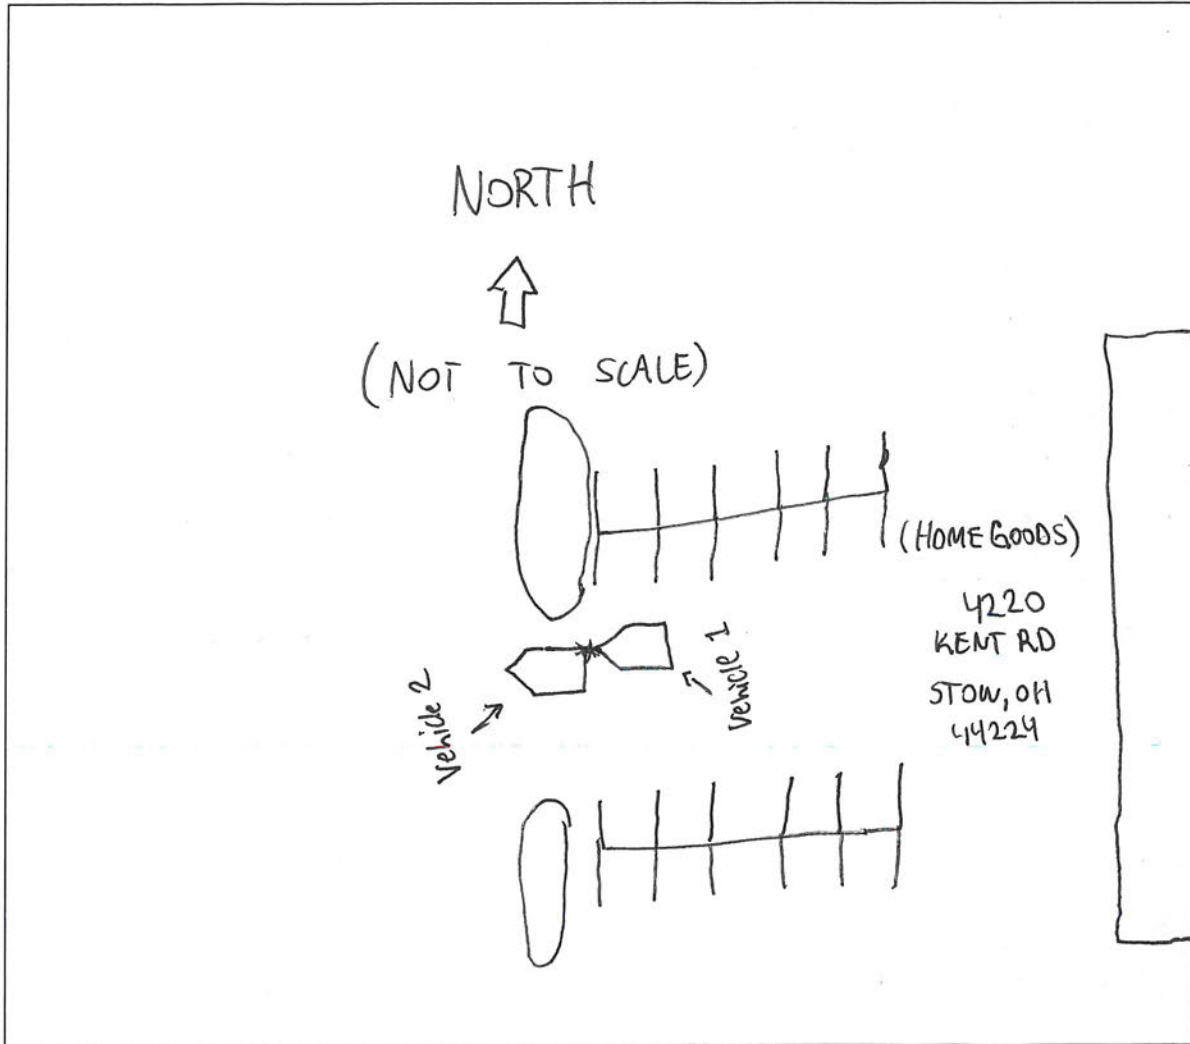 NORTH
(NOT TO SCALE)
(HOMEGOODS)
4220
KENT RD
STOW, OH
44224
Vehicle 1
Vehicle 2